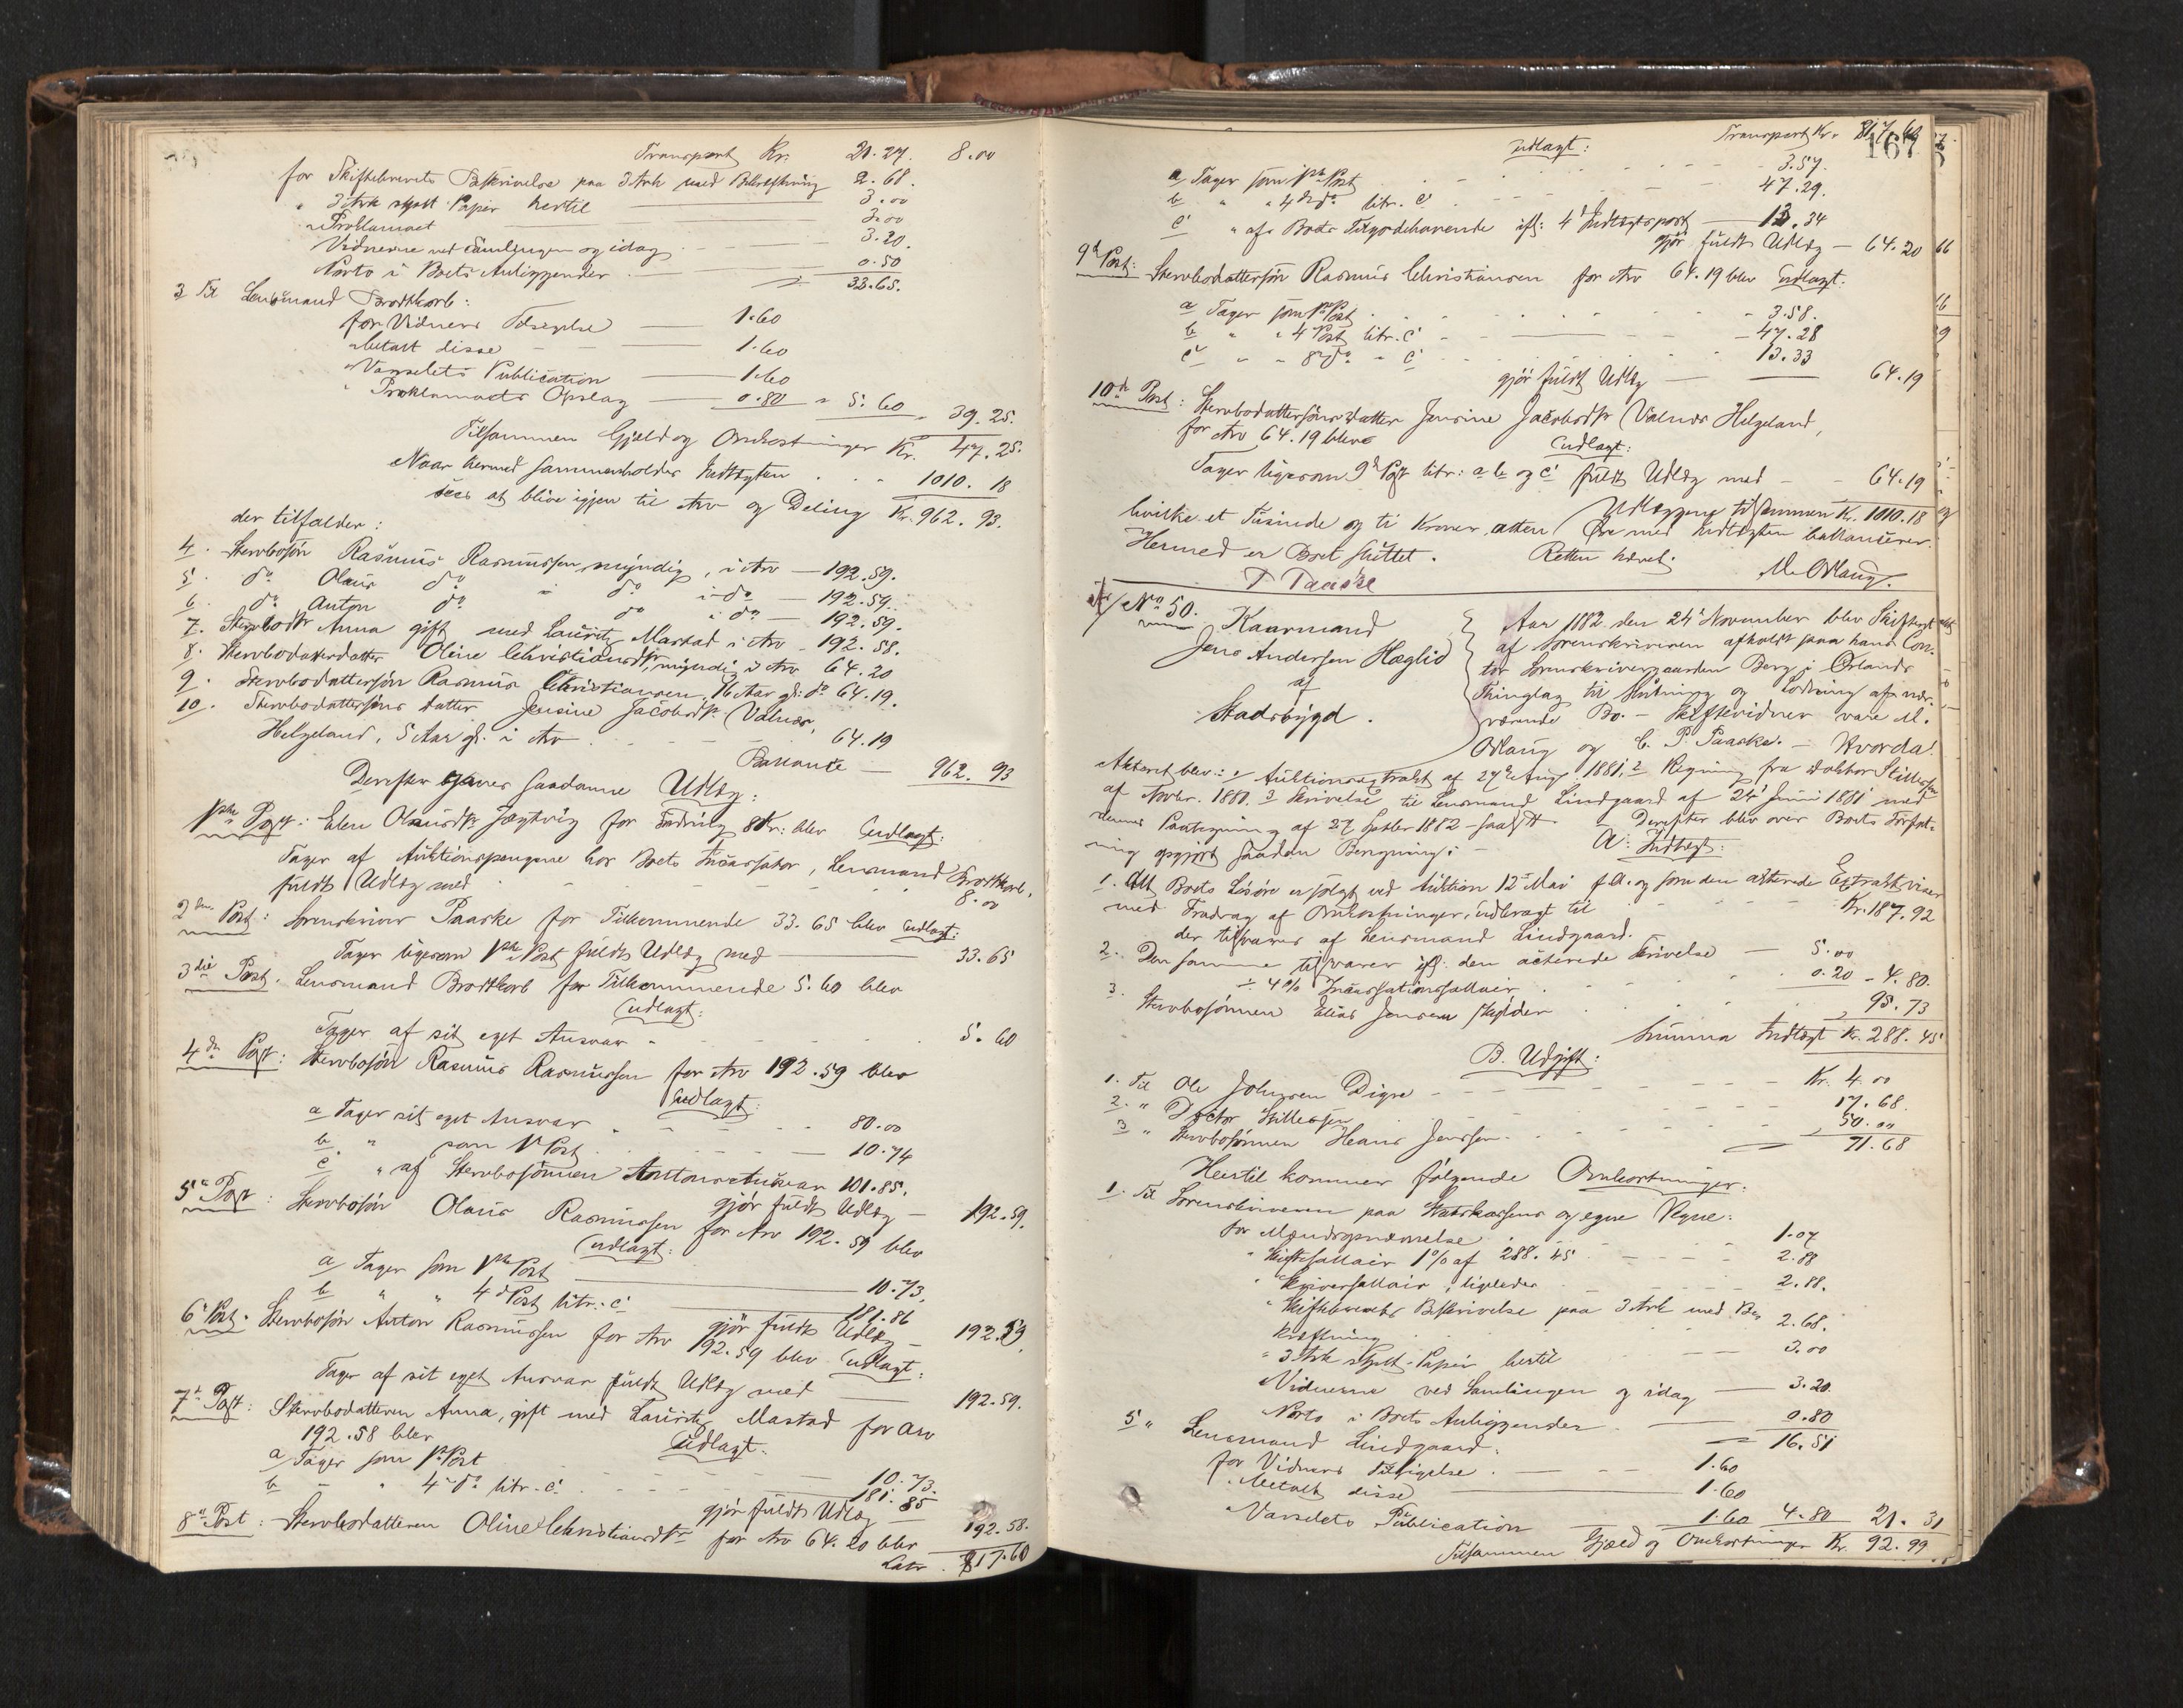 Transport Kr. 21.27. 8.00
for Skiftebrevets Beskrivelse paa 3 Ark med Bekræftning 2.68.
" 3 Ark stplt Papir hertil 3.00
" Proklamaet 3.00
Vidnerne ved Samlingen og idag 3.20.
Porto i Boets Anliggender 0.50
33.65.
3 Til Lensmand Brodtkorb:
for Vidners Tilsigelse 1.60
" betalt disse 1.60
" Varselets Publication 1.60
" Proklamaets Opslag 0.80 = 5.60 39.25.
Tilsammen Gjæld og Omkostninger Kr. 47.25.
Naar hermed sammenholdes Indtægten 1010.18
sees at blive igjen til Arv og Deling Kr. 962.93.
der tilfalder:
4. Stervbosøn Rasmus Rasmussen, myndig, i Arv — 192.59.
5. do Olaus do " do i do — 192.59.
6. do Anton do do i do — 192.59.
7. Stervbodtr Anna gift med Lauritz Mastad i Arv 192.58.
8. Stervbodatterdatter Oline Christiansdtr, myndig i Arv 64.20
9. Stervbodattersøn Rasmus Christiansen, 16 Aar gl: do 64.19.
10. Stervbodattersøns datter Jensine Jacobsdtr Valnæs,
Helgeland, 5 Aar gl. i Arv 64.19
Ballance — 962.93
Derefter gjøres saadanne Udlæg:
1ste Post: Elen Olausdtr Jægtvig for Fordring 8 Kr: blev Udlagt:
Tager af Auktionspengene hos Boets Incassator, Lensmand Brodtkorb,
fuldt Udlæg med 8.00
2den Post: Sorenskriver Paaske for Tilkommende 33.65 blev Udlagt:
Tager ligesom 1ste Post fuldt Udlæg med 33.65
3die Post. Lensmand Brodtkorb for Tilkommende 5.60 blev
Udlagt:
Tager af sit eget Ansvar 5.60
4de Post: Stervbosøn Rasmus Rasmussen for Arv 192.59 blev
Udlagt:
a Tager sit eget Ansvar 80.00
b. " som 1 Post 10.74
c " af Stervbosønnen Antons Ansvar 101.85.
gjør fuldt Udlæg — 192.59.
5te Post: Stervbosøn Olaus Rasmussen for Arv 192.59 blev
Udlagt:
a/ Tager som 1ste Post 10.73,
b " " 4de Post litr: c 181.86
gjør fuldt Udlæg 192.59
6te Post. Stervbosøn Anton Rasmussen for Arv 192.59 blev Udlagt:
Tager af sit eget Ansvar fuldt Udlæg med 192.59.
7de Post: Stervbodatteren Anna, gift med Lauritz Mastad for Arv
192.58 blev Udlagt:
a/ Tager som 1ste Post 10.73.
b " " 4de do litr. c. 181.85
gjør fuldt Udlæg 192.58.
8de Post: Stervbodatteren Oline Christiansdtr for Arv 64.20 blev
Latr. 817.60
Transport Kr. 817.60
167
Udlagt:
a/ Tager som 1ste Post 3.57.
b " " 4de do litr. c. 47.29.
c " af Boets Tilgodehavende ifl: 4de Indtægtspost 13.34
gjør fuldt Udlæg — 64.20
9de Post: Stervbodattersøn Rasmus Christiansen for Arv 64.19 blev Udlagt.
a Tager som 1ste Post 3.58.
b " " 4 Post litr. c 47.28
c " " 8de do " c 13.33
gjør fuldt Udlæg 64.19
10de Post: Stervbodattersøns datter Jensine Jacobsdtr Valnæs Helgeland,
for Arv 64.19 blev Udlagt:
Tager ligesom 9de Post litr: a b og c fuldt Udlæg med 64.19
Udlæggene tilsammen Kr. 1010.18
hvilke et Tusinde og ti Kroner, atten Øre med Indtægten ballancerer.
Hermed er Boet sluttet. Retten hævet.
P Paaske M. Ørlaug.
No 50.
Kaarmand
Jens Andersen Hæglid
af
Stadsbygd.
Aar 1882 den 24de November blev Skifteret
af Sorenskriveren afholdt paa hans Con-
tor Sorenskrivergaarden Berg i Ørlands
Thinglag til Slutning og Lodning af nær-
værende Bo. — Skiftevidner vare M.
Ørlaug og C. P. Paaske. — Hvorda!
Akteret blev: 1 Auktionsextrakt af 27de Aug. 1881, 2 Regning fra Doktor Stillesen
af Novbr. 1880. 3 Skrivelse til Lensmand Lindgaard af 24de Juni 1881 med
dennes Paategning af 27 Septbr 1882 — saalydt. — Derefter blev over Boets Forfat-
ning opgjort saadan Beregning: — A: Indtægt:
1. Alt Boets Løsøre er solgt ved Auktion 12te Mai f.A. og som den akterede Extrakt viser
med Fradrag af Omkostninger, udbragt til Kr. 187.92
der tilsvares af Lensmand Lindgaard.
2. Den samme tilsvarer ifl: den akterede Skrivelse — 5.00
÷ 4% Incassationssallair 0.20 — 4.80.
3. Stervbosønnen Elias Jensen skylder 95.73
Summa Indtægt Kr. 288.45
B. Udgift:
1. Til Ole Johnsen Digre Kr. 4.00
2. " Doctor Stillesen 17.68.
3 " Stervbosønnen Hans Jensen 50.00
71.68
Hertil kommer følgende Omkostninger.
1. Til Sorenskriveren paa Statskassens og egne Vegne:
for Mændsopnævnelse 1.07
" Skiftesallair 1% af 288.45 2.88
" Skriversallair, ligeledes 2.88.
" Skiftebrevets Beskrivelse paa 3 Ark med Be-
kræftning 2.68.
" 3 Ark stplt. Papir hertil 3.00
Vidnerne ved Samlingen og idag — 3.20
Porto i Boets Anliggender 0.80
16.51
5 " Lensmand Lindgaard:
for Vidners Tilsigelse. 1.60
" Betalt disse 1.60
" Varselets Publication 1.60 4.80 21.31
Tilsammen Gjæld og Omkostninger Kr. 92.99